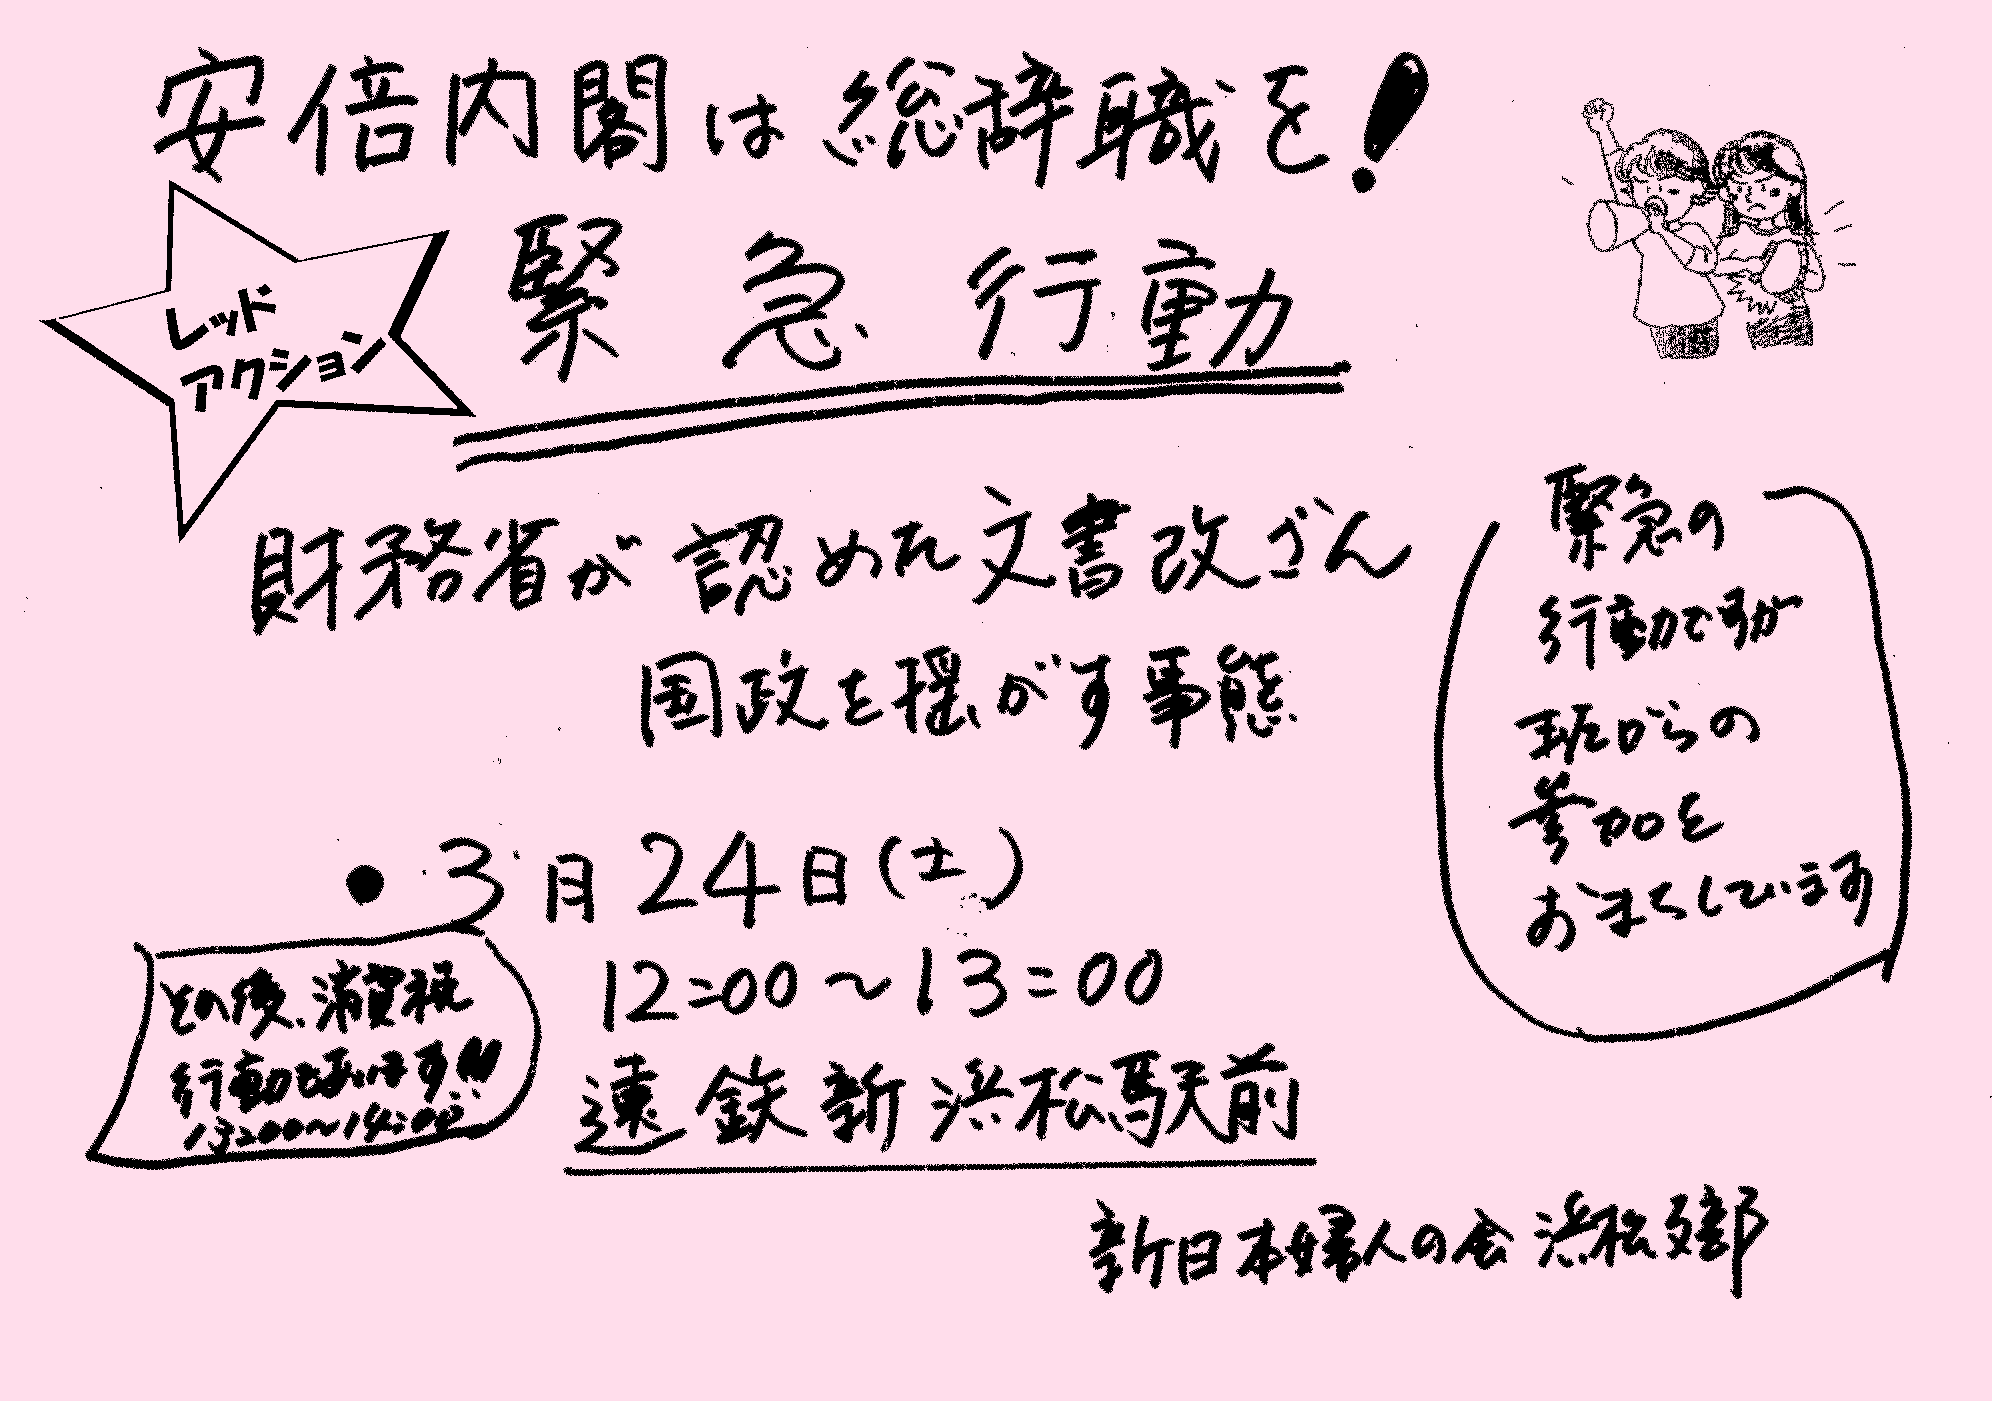 安倍内閣は総辞職を!
レッド
アクション
緊急行動
財務省が認めた文書改ざん
国政を揺がす事態
緊急の
行動ですが
班からの
参加を
おまちしています
●3月24日(土)
12:00〜13:00
遠鉄新浜松駅前
その後、消費税
行動もあります!!
13:00〜14:00
新日本婦人の会 浜松支部